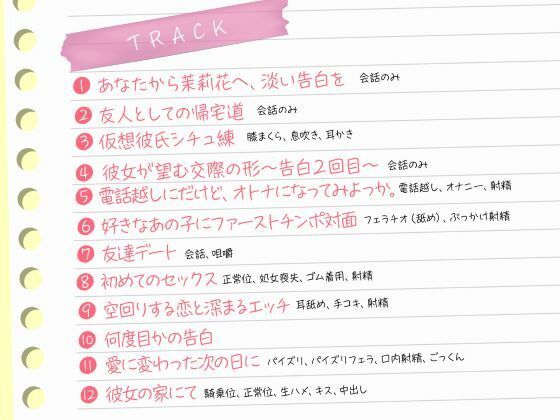 TRACK
1 あなたから茉莉花へ、淡い告白を 会話のみ
2 友人としての帰宅道 会話のみ
3 仮想彼氏シチュ練 膝まくら、息吹き、耳かき
4 彼女が望む交際の形~告白2回目~ 会話のみ
5 電話越しにだけど、オトナになってみよっか。 電話越し、オナニー、射精
6 好きなあの子にファーストチンポ対面 フェラチオ(舐め)、ぶっかけ射精
7 友達デート 会話、咀嚼
8 初めてのセックス 正常位、処女喪失、ゴム着用、射精
9 空回りする恋と深まるエッチ 耳舐め、手コキ、射精
10 何度目かの告白
11 愛に変わった次の日に パイズリ、パイズリフェラ、口内射精、ごっくん
12 彼女の家にて 騎乗位、正常位、生ハメ、キス、中出し